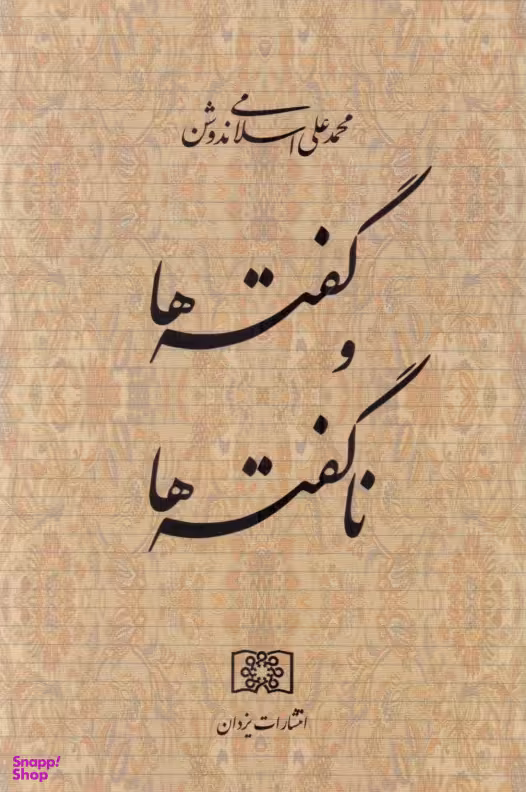 محمد علی اسلامی ندوشن
گفته ها
و
ناگفته ها
انتشارات یزدان
Snapp!
Shop